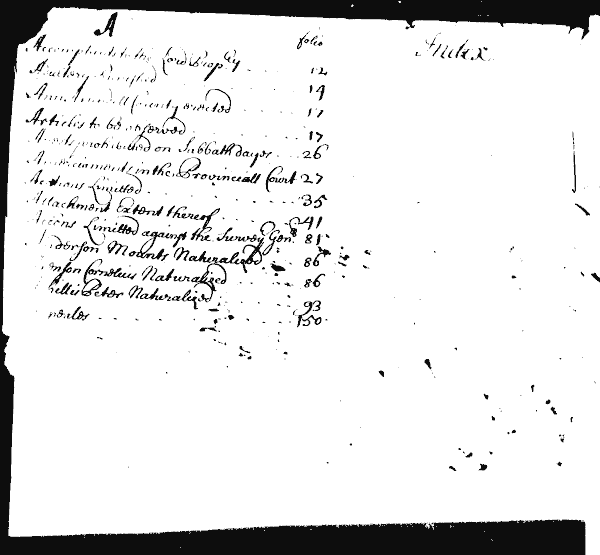 A
folio
Index
Accompl to the Lord Prop̄ry 12
Adultery Punished 14
Ann Arundell County erected 17
Articles to be observed 17
Arrests prohibited on Sabbath dayes 26
in the Provinciall Court 27
Actions Limitted 35
Attachment Extent thereof 41
Accons Limitted against the Survey Genˡˡ 81
nderson Mounts Naturalized 86
nson Cornelius Naturalized 86
hillis Peter Naturalized 93
peales 150